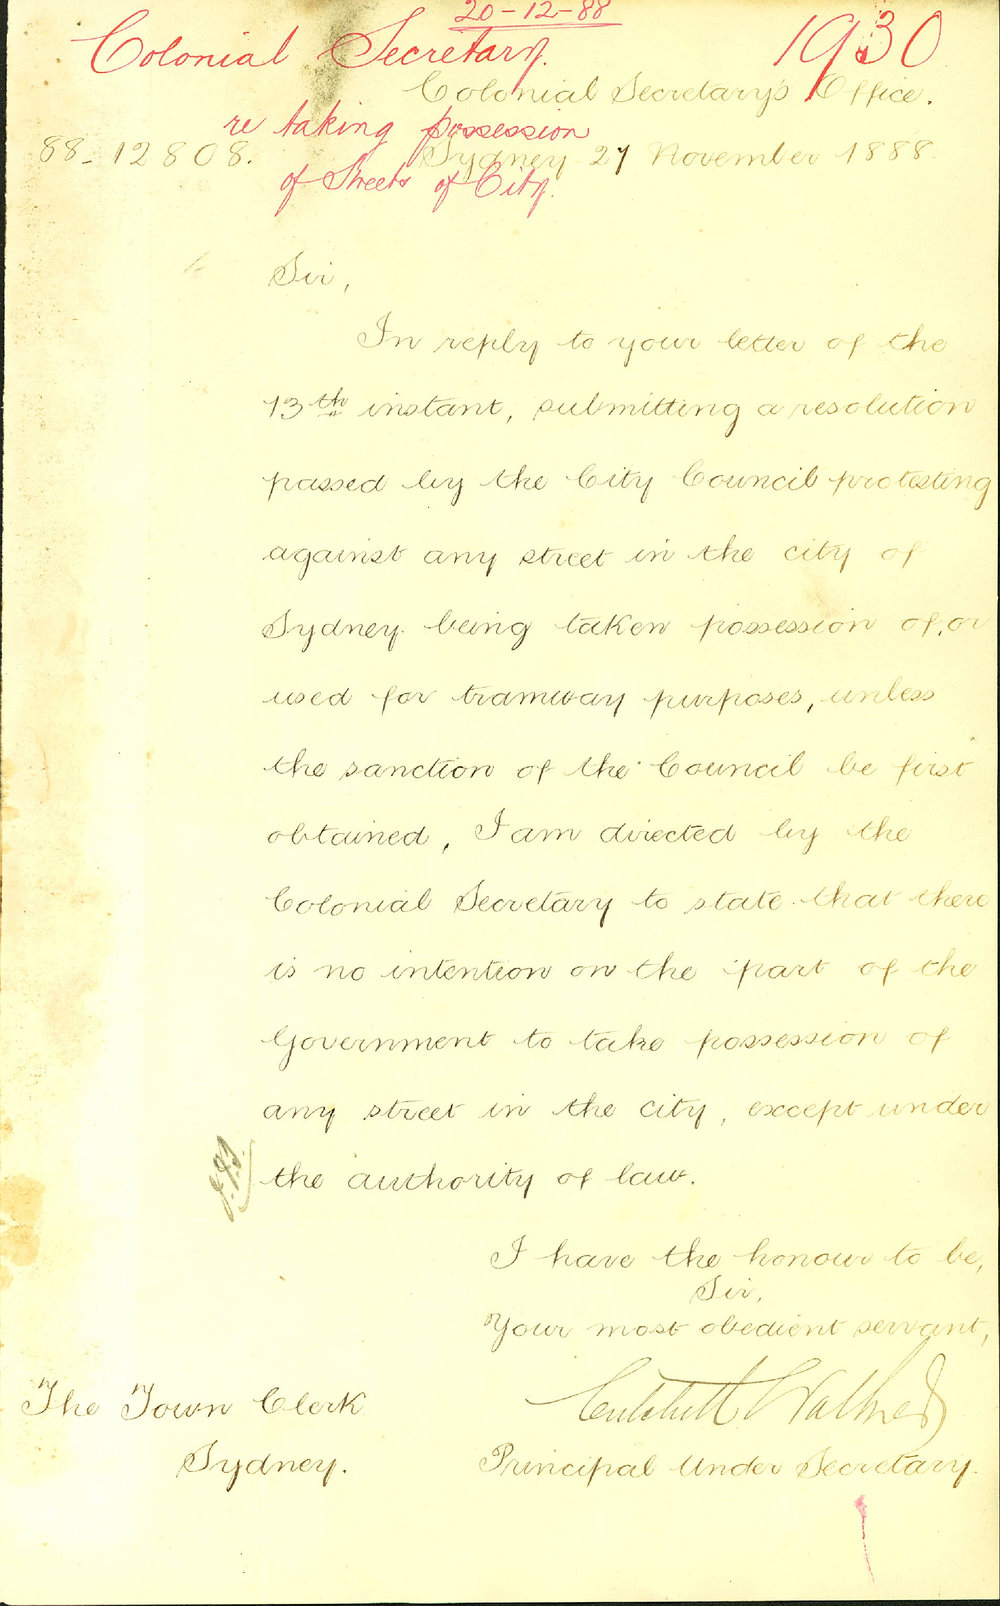 20-12-88
Colonial Secretary.
1930
Colonial Secretary's Office.
re taking possession
88-12808.
Sydney 27 November 1888
of Streets of City.
Sir,
In reply to your letter of the
13th instant, submitting a resolution
passed by the City Council protesting
against any street in the city of
Sydney being taken possession of, or
used for tramway purposes, unless
the sanction of the Council be first
obtained, I am directed by the
Colonial Secretary to state that there
is no intention on the part of the
Government to take possession of
any street in the city, except under
the authority of law.
I have the honour to be,
Sir,
Your most obedient servant,
Critchett Walker
The Town Clerk
Sydney.
Principal Under Secretary.